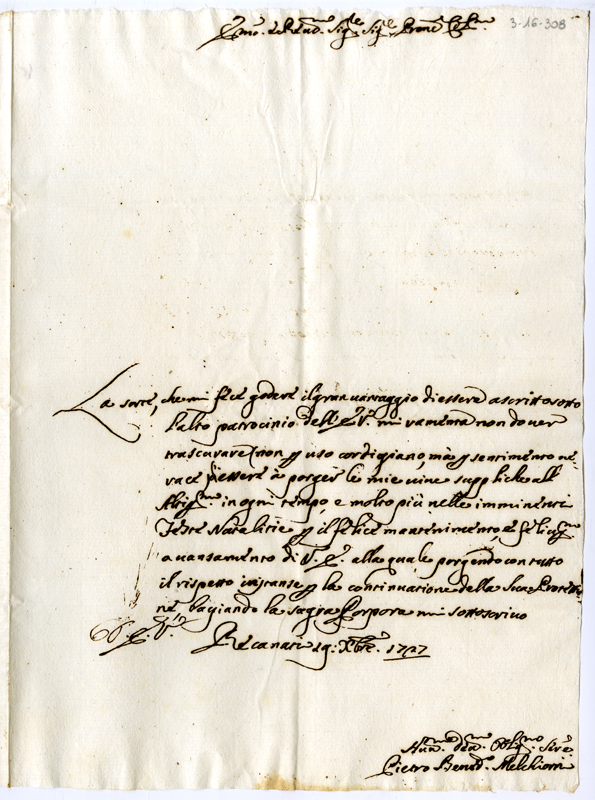 3-16-308
Emo. e Rmo. Sig.re Sig.re Prone Colmo.
La sorte, che mi fece godere il gran vantaggio di essere ascritto sotto
l'alto patrocinio dell'E.V. mi rammenta non dover
trascurare (non p uso cordigiano, mà p sentimento ve-
race p essere à porger le mie vive suppliche all'
Altissmo in ogni tempo, e molto più nelle imminenti
Feste Natalitie p il felice mantenimento, e felicissmo
avansamento di V.E. alla quale porgendo con tutto
il rispetto instanse p la continuatione della Sua Protettio-
ne, bagiando la sagra Porpora mi sottoscrivo
Di V.E.
Recanati 19: Xbre. 1727
Humo. devmo. Oblmo. Sere
Pietro Bened.o Melchiorri